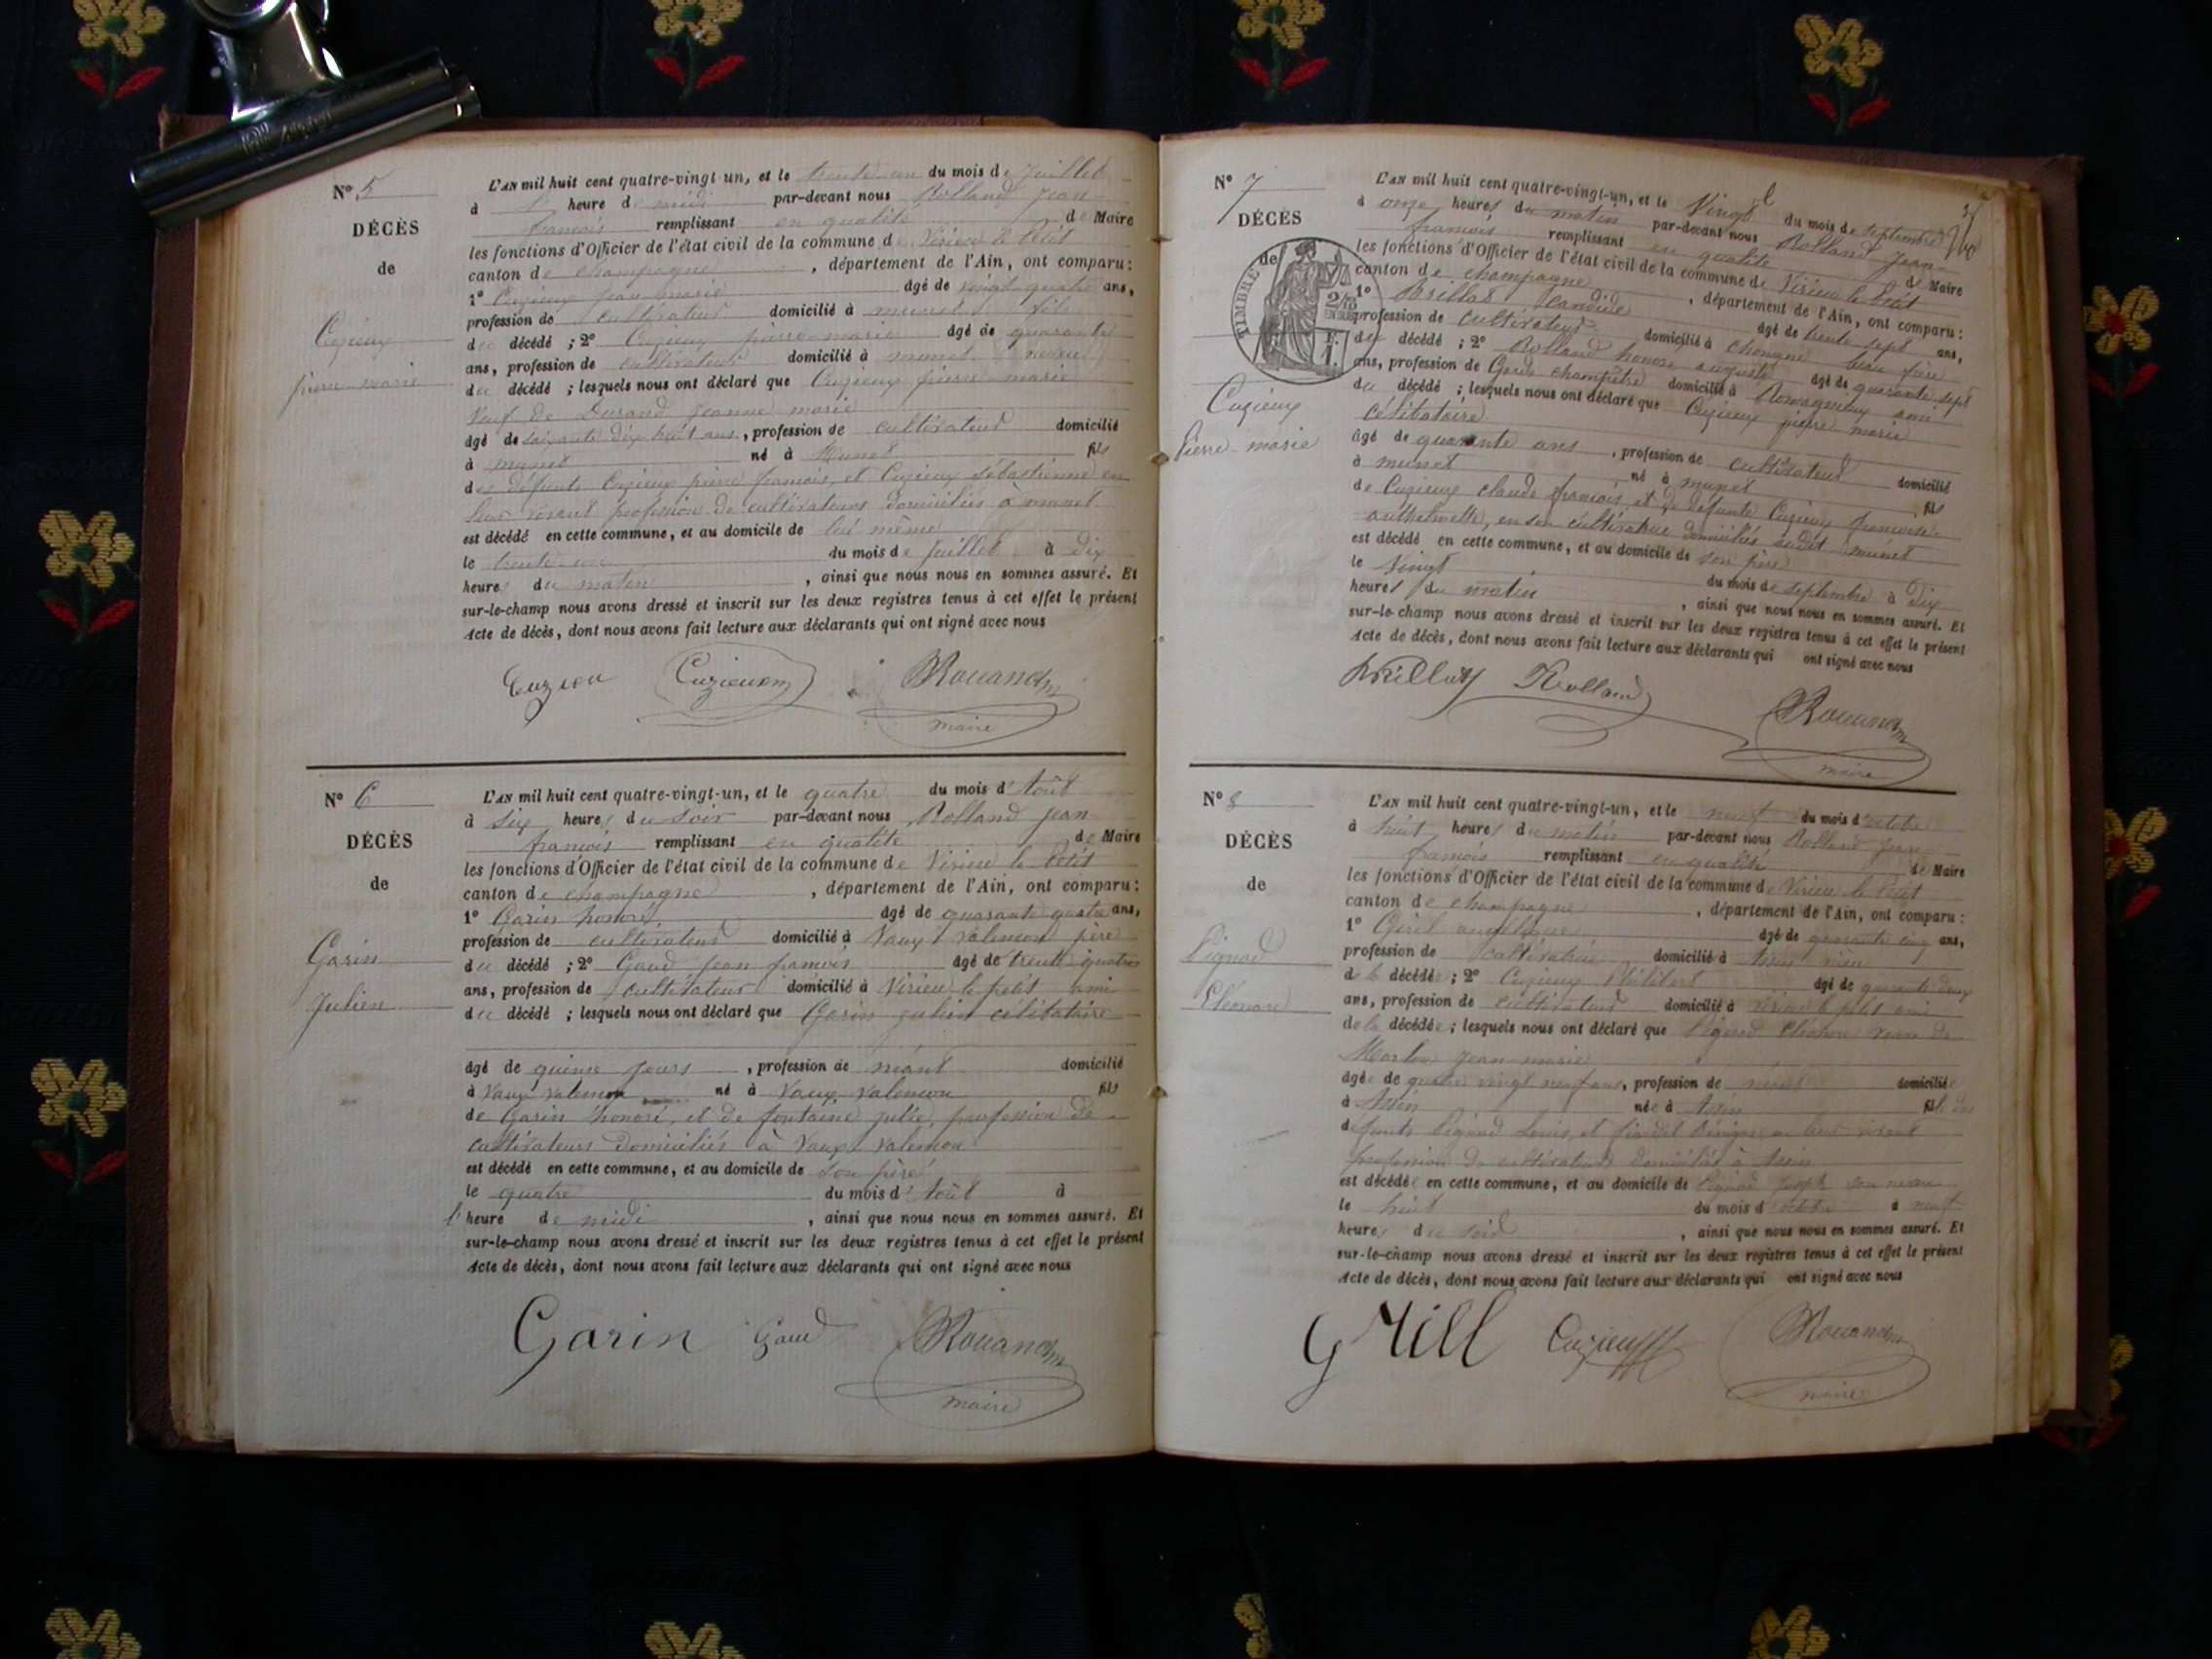 N° 5
DÉCÈS
de
Cuzieux
pierre marie
L'AN mil huit cent quatre-vingt-un, et le trente un du mois de Juillet
à heure de midi par-devant nous Rolland Jean
françois remplissant en qualité de Maire
les fonctions d'Officier de l'état civil de la commune de Virieu le Petit
canton de champagne, département de l'Ain, ont comparu:
1° Cuzieux jean marie âgé de vingt quatre ans,
profession de cultivateur domicilié à munet fils
du décédé; 2° Cuzieux pierre marie âgé de quarante
ans, profession de cultivateur domicilié à munet neveu
du décédé; lesquels nous ont déclaré que Cuzieux pierre marie
Veuf de Durand Jeanne marie
âgé de soixante dix huit ans, profession de cultivateur domicilié
à munet né à Munet fils
des défunts Cuzieux pierre françois, et Cuzieux sébastienne en
leur vivant profession de cultivateurs domiciliés à munet
est décédé en cette commune, et au domicile de lui même
le trente un du mois de Juillet à dix
heures du matin, ainsi que nous nous en sommes assuré. Et
sur-le-champ nous avons dressé et inscrit sur les deux registres tenus à cet effet le présent
Acte de décès, dont nous avons fait lecture aux déclarants qui ont signé avec nous
maire
N° 6
DÉCÈS
de
Garin
Julien
L'AN mil huit cent quatre-vingt-un, et le quatre du mois d'Août
à six heures du soir par-devant nous Rolland jean
françois remplissant en qualité de Maire
les fonctions d'Officier de l'état civil de la commune de Virieu le Petit
canton de champagne, département de l'Ain, ont comparu:
1° Garin honoré âgé de quarante quatre ans,
profession de cultivateur domicilié à Vaux Valencon père
du décédé; 2° Gaud jean françois âgé de trente quatre
ans, profession de cultivateur domicilié à Virieu le petit ami
du décédé; lesquels nous ont déclaré que Garin julien célibataire
âgé de quinze jours, profession de néant domicilié
à Vaux Valencon né à Vaux Valencon fils
de Garin honoré, et de fontaine julie, profession de
cultivateurs domiciliés à Vaux Valencon
est décédé en cette commune, et au domicile de son père
le quatre du mois d'Août à
heure de midi, ainsi que nous nous en sommes assuré. Et
sur-le-champ nous avons dressé et inscrit sur les deux registres tenus à cet effet le présent
Acte de décès, dont nous avons fait lecture aux déclarants qui ont signé avec nous
Garin Gaud
maire
N° 7
DÉCÈS
de
TIMBRE
Cuzieux
Pierre marie
L'AN mil huit cent quatre-vingt-un, et le Vingt du mois de septembre
à onze heures du matin par-devant nous Rolland Jean
françois remplissant en qualité de Maire
les fonctions d'Officier de l'état civil de la commune de Virieu le Petit
canton de champagne, département de l'Ain, ont comparu:
1° Brillat Candide âgé de trente sept ans,
profession de cultivateur domicilié à chongne beau frère
du décédé; 2° Rolland honoré auguste âgé de quarante sept
ans, profession de Garde champêtre domicilié à Romagnieux ami
du décédé; lesquels nous ont déclaré que Cuzieux pierre marie
célibataire
âgé de quarante ans, profession de cultivateur domicilié
à munet né à munet fils
de Cuzieux claude françois, et de défunte Cuzieux françoise
anthelmette, en son cultivateur domiciliés audit munet
est décédé en cette commune, et au domicile de son père
le Vingt du mois de septembre à dix
heures du matin, ainsi que nous nous en sommes assuré. Et
sur-le-champ nous avons dressé et inscrit sur les deux registres tenus à cet effet le présent
Acte de décès, dont nous avons fait lecture aux déclarants qui ont signé avec nous
Brillat Rolland
maire
N° 8
DÉCÈS
de
Pignod
Eléonore
L'AN mil huit cent quatre-vingt-un, et le neuf du mois d'octobre
à huit heures du matin par-devant nous Rolland Jean
françois remplissant en qualité de Maire
les fonctions d'Officier de l'état civil de la commune de Virieu le Petit
canton de champagne, département de l'Ain, ont comparu:
1° âgé de quarante cinq ans,
profession de cultivateur domicilié à Assin
de la décédée; 2° Cuzieux Philibert âgé de quarante deux
ans, profession de cultivateur domicilié à virieu le petit ami
de la décédée; lesquels nous ont déclaré que Pignod Eléonore veuve de
jean marie
âgée de quatre vingt neuf ans, profession de néant domiciliée
à Assin née à Assin fille des
défunts Pignod Louis, et en leur vivant
profession de cultivateurs domiciliés à Assin
est décédée en cette commune, et au domicile de Pignod joseph son neveu
le huit du mois d'octobre à neuf
heures du soir, ainsi que nous nous en sommes assuré. Et
sur-le-champ nous avons dressé et inscrit sur les deux registres tenus à cet effet le présent
Acte de décès, dont nous avons fait lecture aux déclarants qui ont signé avec nous
Cuzieux
maire